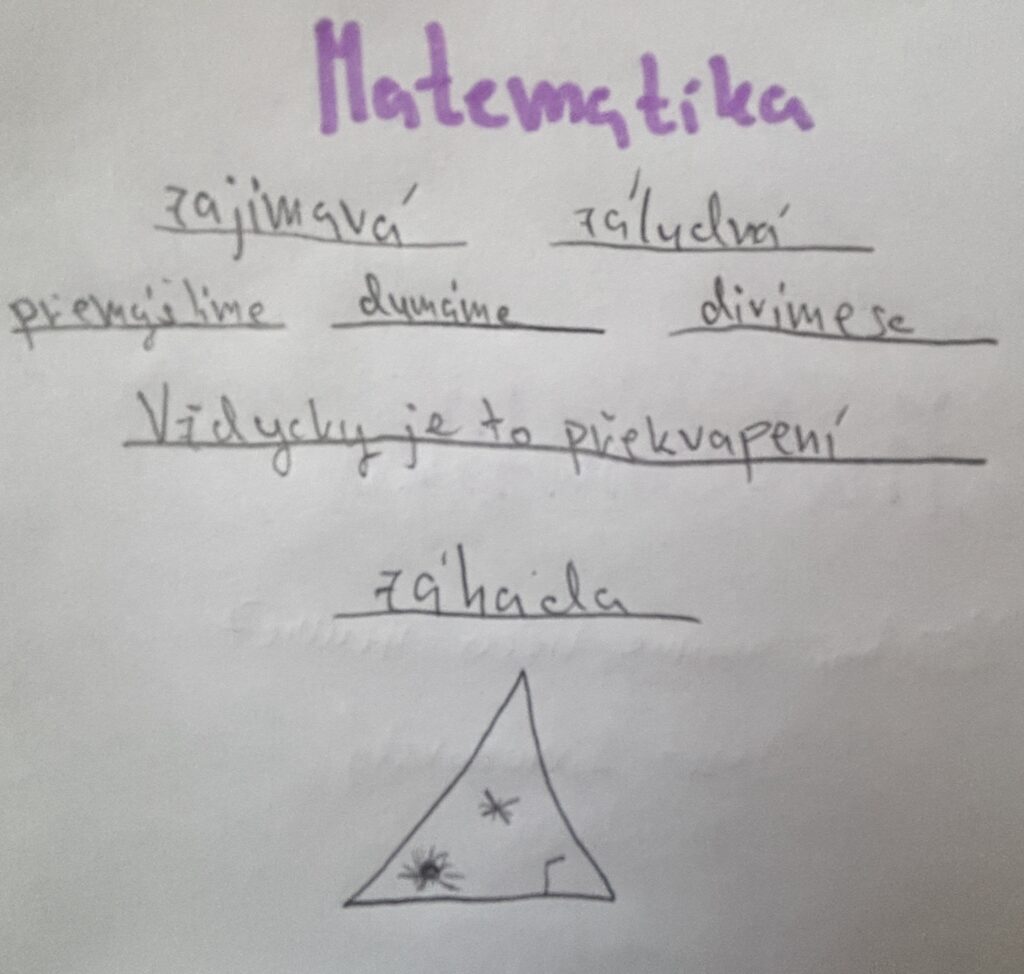 Matematika
zajímavá záludná
přemýšlíme dumáme divíme se
Vždycky je to překvapení
záhada